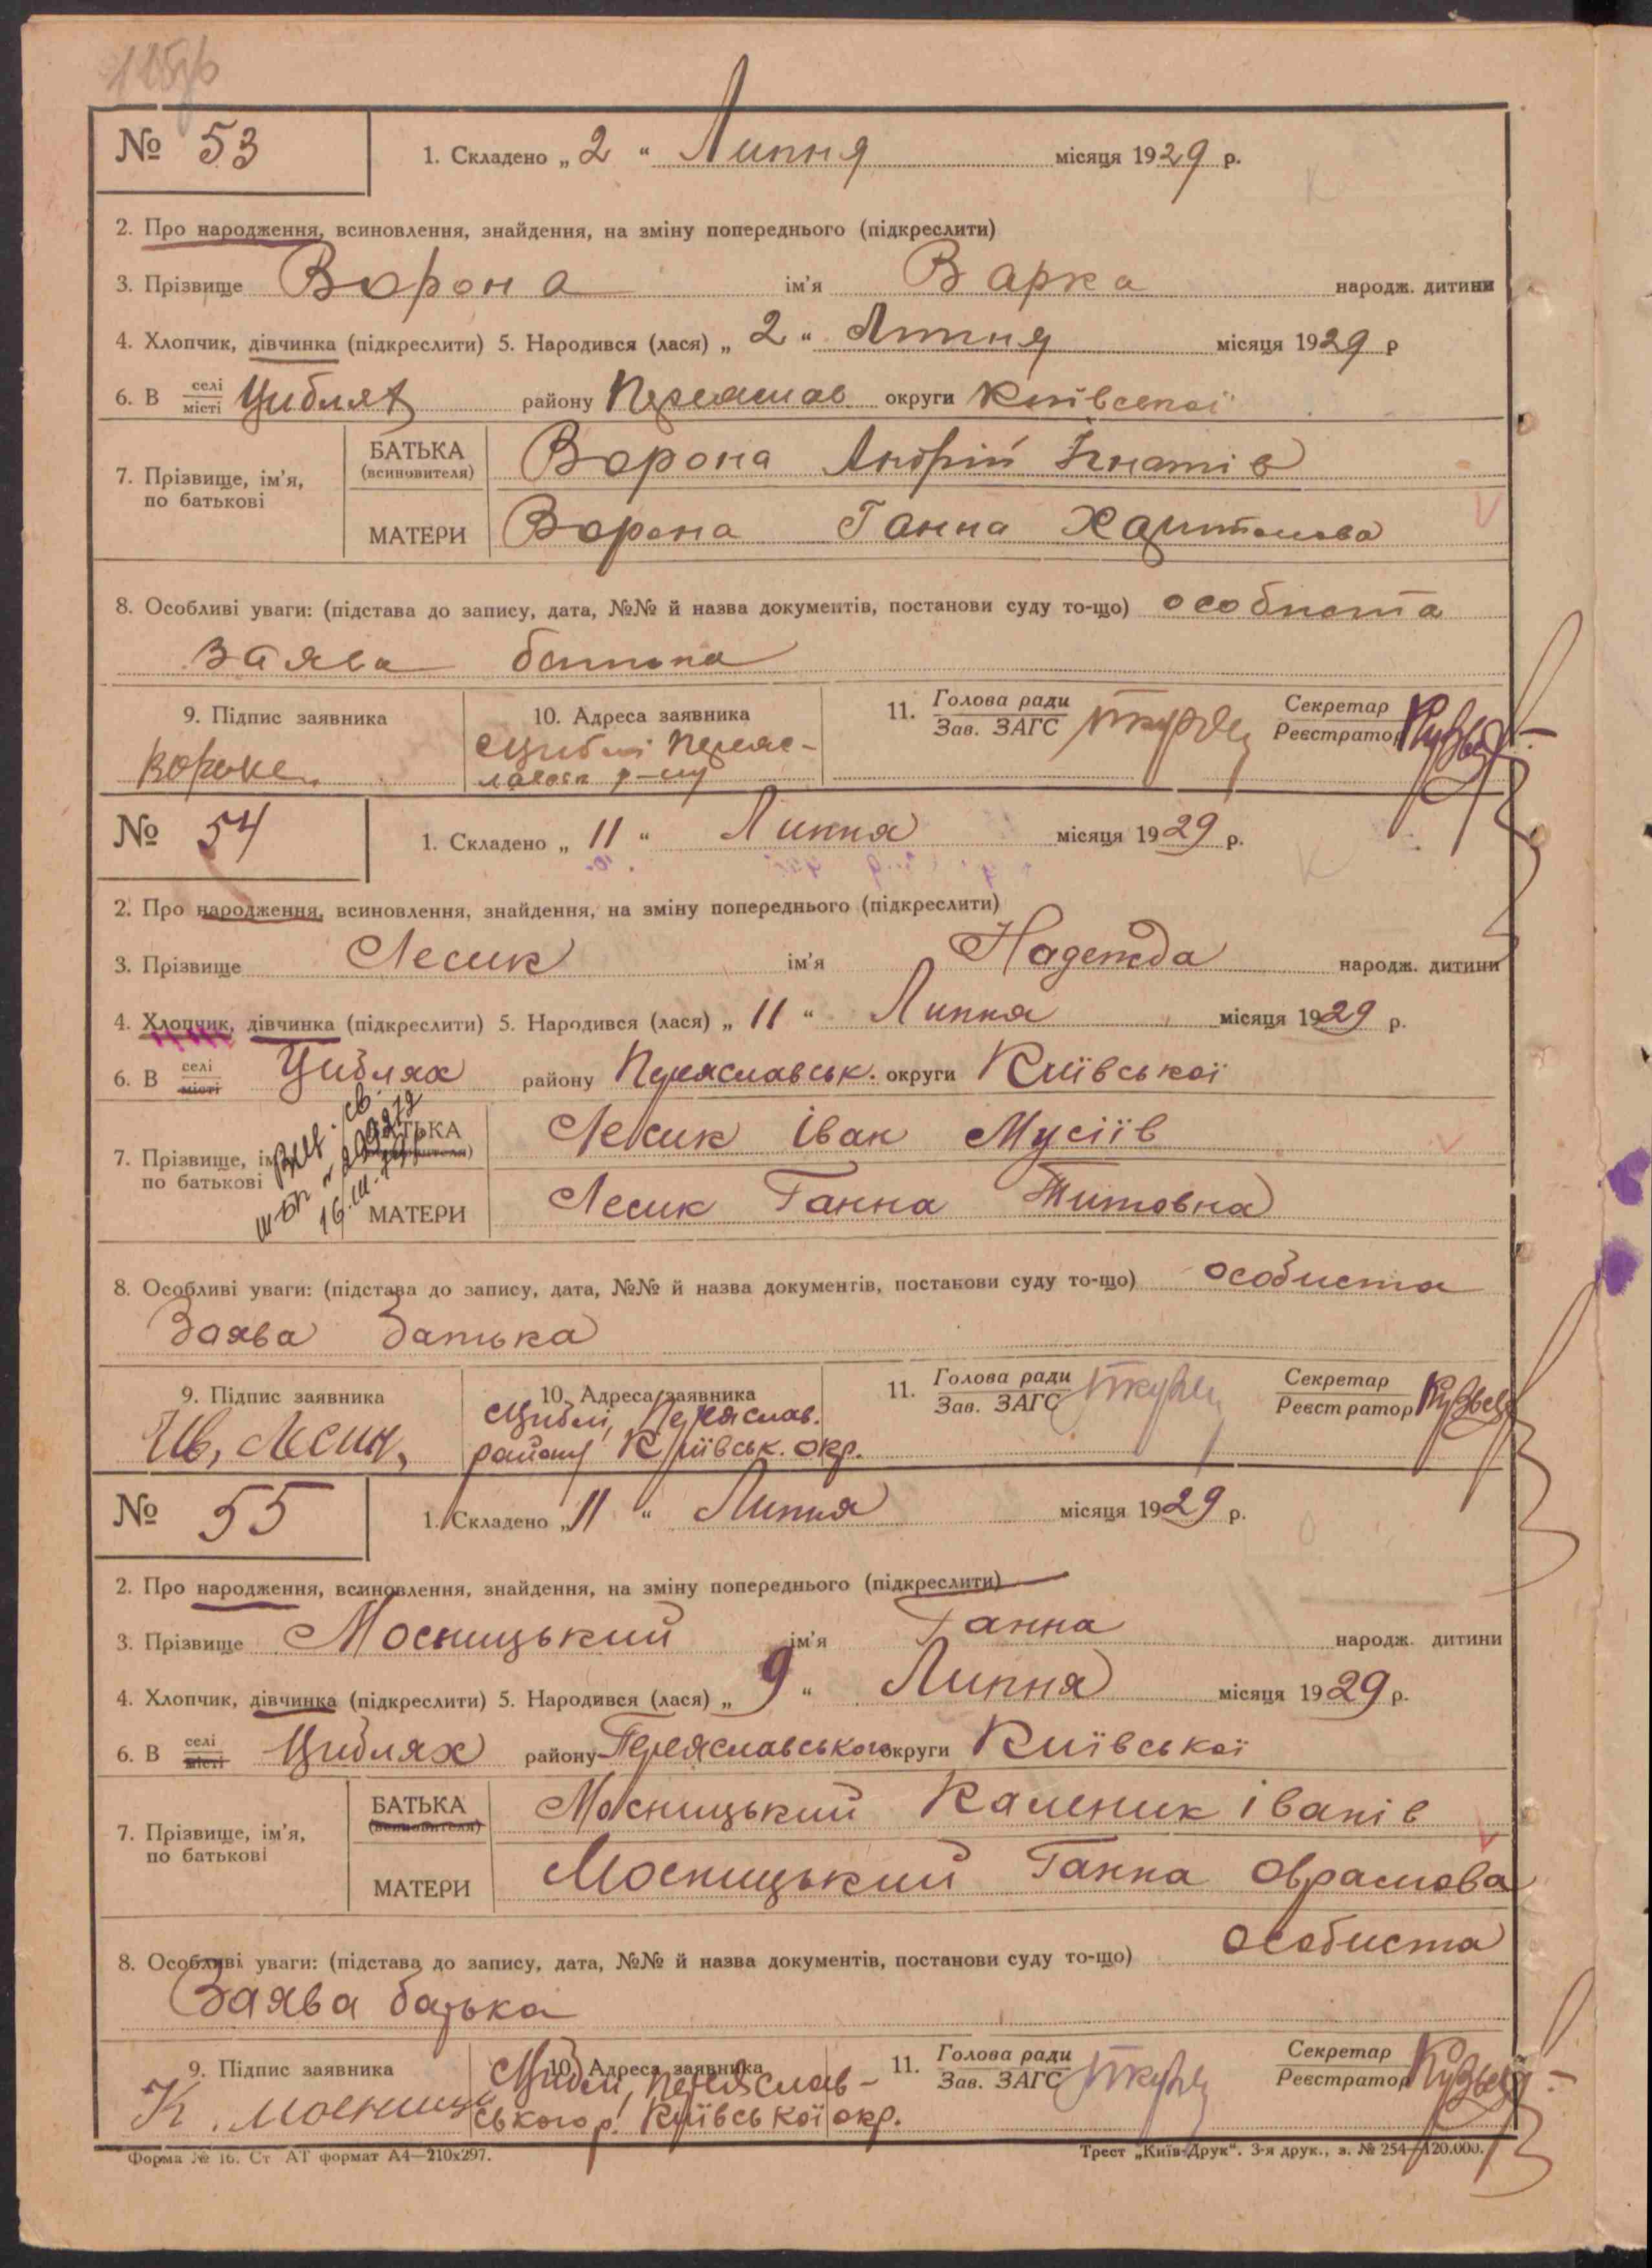 № 53
1. Складено „ 2 “ Липня місяця 1929 р.
2. Про народження, всиновлення, знайдення, на зміну попереднього (підкреслити)
3. Прізвище Ворона ім'я Варка народж. дитини
4. Хлопчик, дівчинка (підкреслити) 5. Народився (лася) „ 2 “ Липня місяця 1929 р
6. В селі місті Циблях району Переяслав округи Київської
7. Прізвище, ім'я, по батькові
БАТЬКА (всиновителя) Ворона Андрій Ігнатів
МАТЕРИ Ворона Ганна Харитонова
8. Особливі уваги: (підстава до запису, дата, №№ й назва документів, постанови суду то-що) особиста
заява батька
9. Підпис заявника
10. Адреса заявника
11. Голова ради Зав. ЗАГС
Секретар Реєстратор
Циблі Переяс-
р-ну
№ 54
1. Складено „ 11 “ Липня місяця 1929 р.
2. Про народження, всиновлення, знайдення, на зміну попереднього (підкреслити)
3. Прізвище Лесик ім'я Надежда народж. дитини
4. Хлопчик, дівчинка (підкреслити) 5. Народився (лася) „ 11 “ Липня місяця 1929 р.
6. В селі місті Циблях району Переяславськ. округи Київської
7. Прізвище, по батькові
БАТЬКА Лесик Іван Мусіїв
МАТЕРИ Лесик Ганна Титовна
8. Особливі уваги: (підстава до запису, дата, №№ й назва документів, постанови суду то-що) особиста
Заява батька
9. Підпис заявника
10. Адреса заявника
11. Голова ради Зав. ЗАГС
Секретар Реєстратор
Ів, Лесик,
Циблі, Переяслав.
району Київськ. окр.
№ 55
1. Складено „ 11 “ Липня місяця 1929 р.
2. Про народження, всиновлення, знайдення, на зміну попереднього (підкреслити)
3. Прізвище Мосницький ім'я Ганна народж. дитини
4. Хлопчик, дівчинка (підкреслити) 5. Народився (лася) „ 9 “ Липня місяця 1929 р.
6. В селі місті Циблях району Переяславського округи Київської
7. Прізвище, ім'я, по батькові
БАТЬКА (всиновителя) Мосницький Каленик Іванів
МАТЕРИ Мосницький Ганна Оврамова
8. Особливі уваги: (підстава до запису, дата, №№ й назва документів, постанови суду то-що) особиста
Заява батька
9. Підпис заявника
10. Адреса заявника
11. Голова ради Зав. ЗАГС
Секретар Реєстратор
К. Мосниць
Циблі, Переяслав-
ського р. Київської окр.
Форма № 16. Ст АТ формат А4—210х297.
Трест „Київ-Друк“. 3-я друк., з. № 254—120.000.